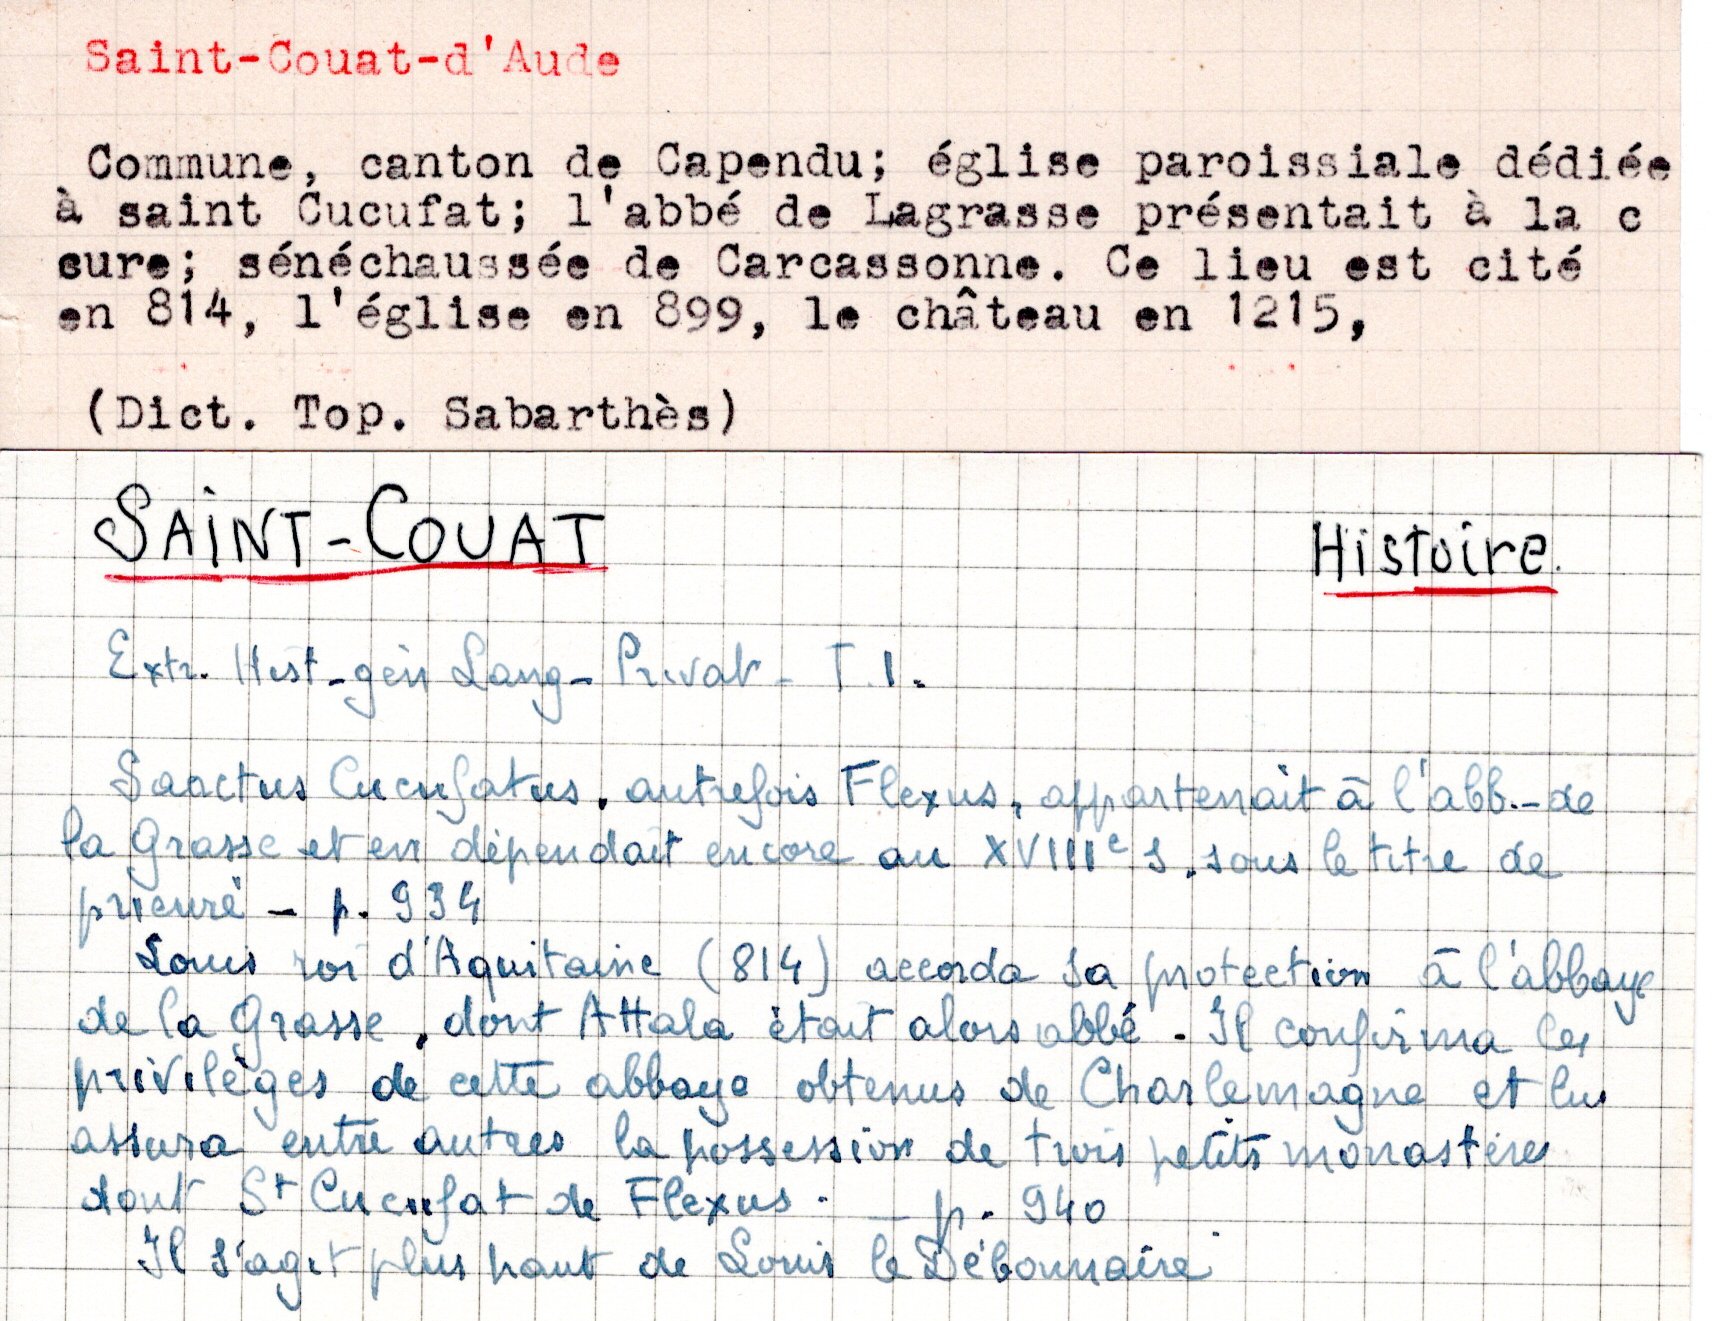 Saint-Couat-d'Aude
Commune, canton de Capendu; église paroissiale dédiée
à saint Cucufat; l'abbé de Lagrasse présentait à la c
cure; sénéchaussée de Carcassonne. Ce lieu est cité
en 814, l'église en 899, le château en 1215,
(Dict. Top. Sabarthès)
SAINT-COUAT
Histoire.
Extr. Hist-gén Lang- Privat - T.1.
Sanctus Cucufatus, autrefois Flexus, appartenait à l'abb.- de
la Grasse et en dépendait encore au XVIIIe s. sous le titre de
prieuré - p. 934
Louis roi d'Aquitaine (814) accorda sa protection à l'abbaye
de la Grasse, dont Attala était alors abbé. Il confirma les
privilèges de cette abbaye obtenus de Charlemagne et lui
assura entre autres la possession de trois petits monastères
dont St Cucufat de Flexus. - p. 940
Il s'agit plus haut de Louis le Débonnaire